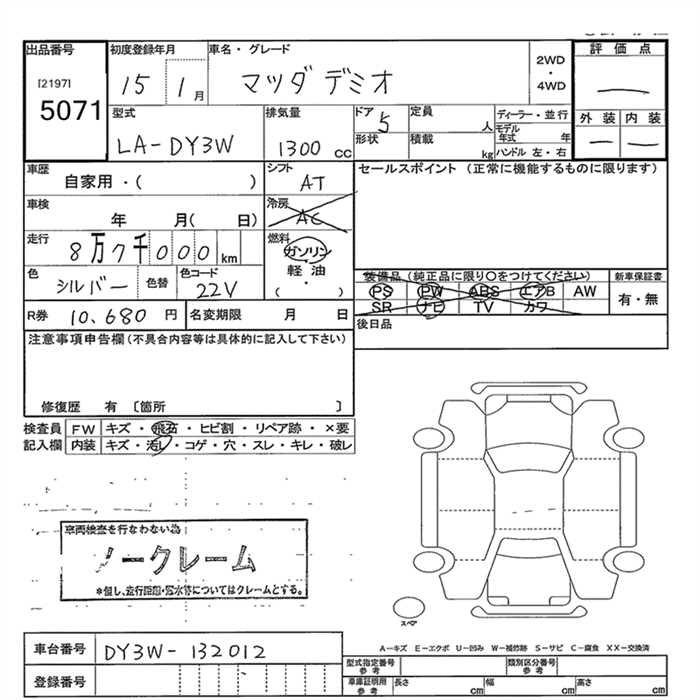 出品番号
[2197]
5071
初度登録年月
15 1月
車名・グレード
マツダ デミオ
2WD
・
4WD
評価点
—
外装 内装
— —
型式
LA-DY3W
排気量
1300 cc
ドア 5
形状
定員 人
積載 kg
ディーラー・並行
モデル年式 年
ハンドル 左・右
車歴
自家用・( )
シフト
AT
セールスポイント (正常に機能するものに限ります)
車検
年 月( 日)
冷房
AC
走行
8万7千000km
燃料
ガソリン
・
軽油
・
( )
色
シルバー
色替
色コード
22V
装備品 (純正品に限り○をつけてください)
PS PW ABS エアB AW
SR ナビ TV カワ
新車保証書
有・無
R券 10,680円
名変期限 月 日
後日品
注意事項申告欄(不具合内容等は具体的に記入して下さい)
修復歴 有 〔箇所 〕
検査員
記入欄
FW キズ・飛石・ヒビ割・リペア跡・×要
内装 キズ・汚レ・コゲ・穴・スレ・キレ・破レ
車両検査を行なわない為
ノークレーム
*但し、走行距離・冠水等についてはクレームとする。
スペア
A-キズ E-エクボ U-凹み W-補修跡 S-サビ C-腐食 XX-交換済
車台番号 DY3W-132012
登録番号
型式指定番号
参考
類別区分番号
参考
車庫証明用
参考
長さ cm 幅 cm 高さ cm